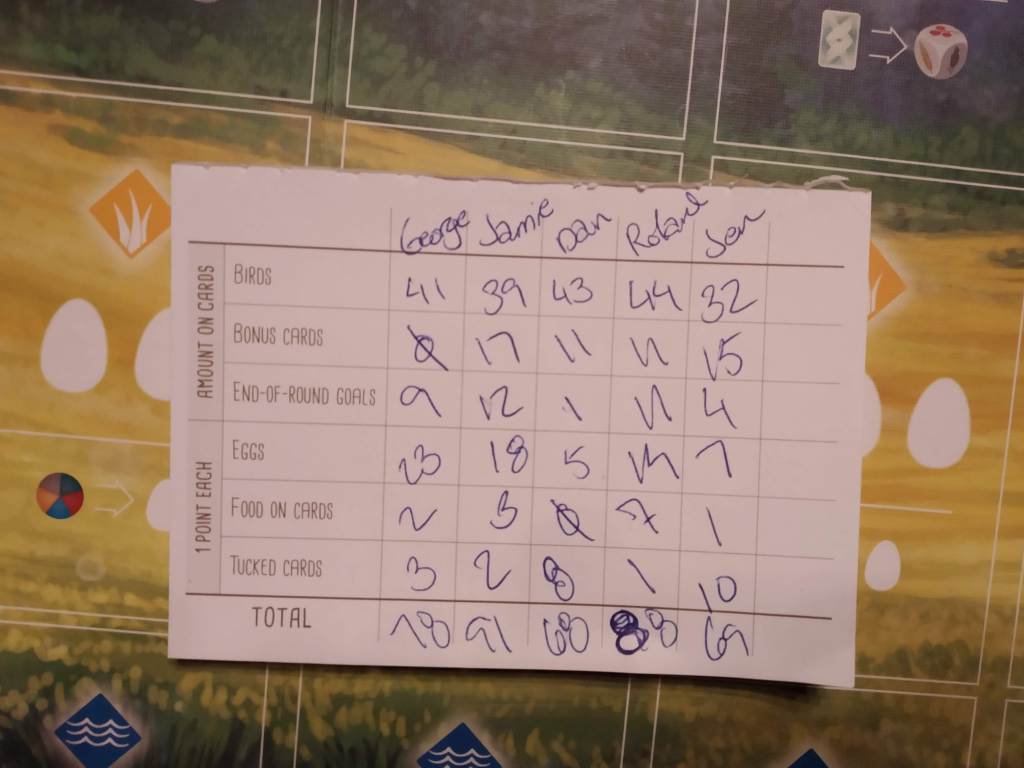 George Jamie Dan Roland Jen
AMOUNT ON CARDS
BIRDS 41 39 43 44 32
BONUS CARDS 0 17 11 11 15
END-OF-ROUND GOALS 9 12 1 11 4
1 POINT EACH
EGGS 23 18 5 14 7
FOOD ON CARDS 2 3 0 7 1
TUCKED CARDS 3 2 8 1 10
TOTAL 78 91 68 88 69